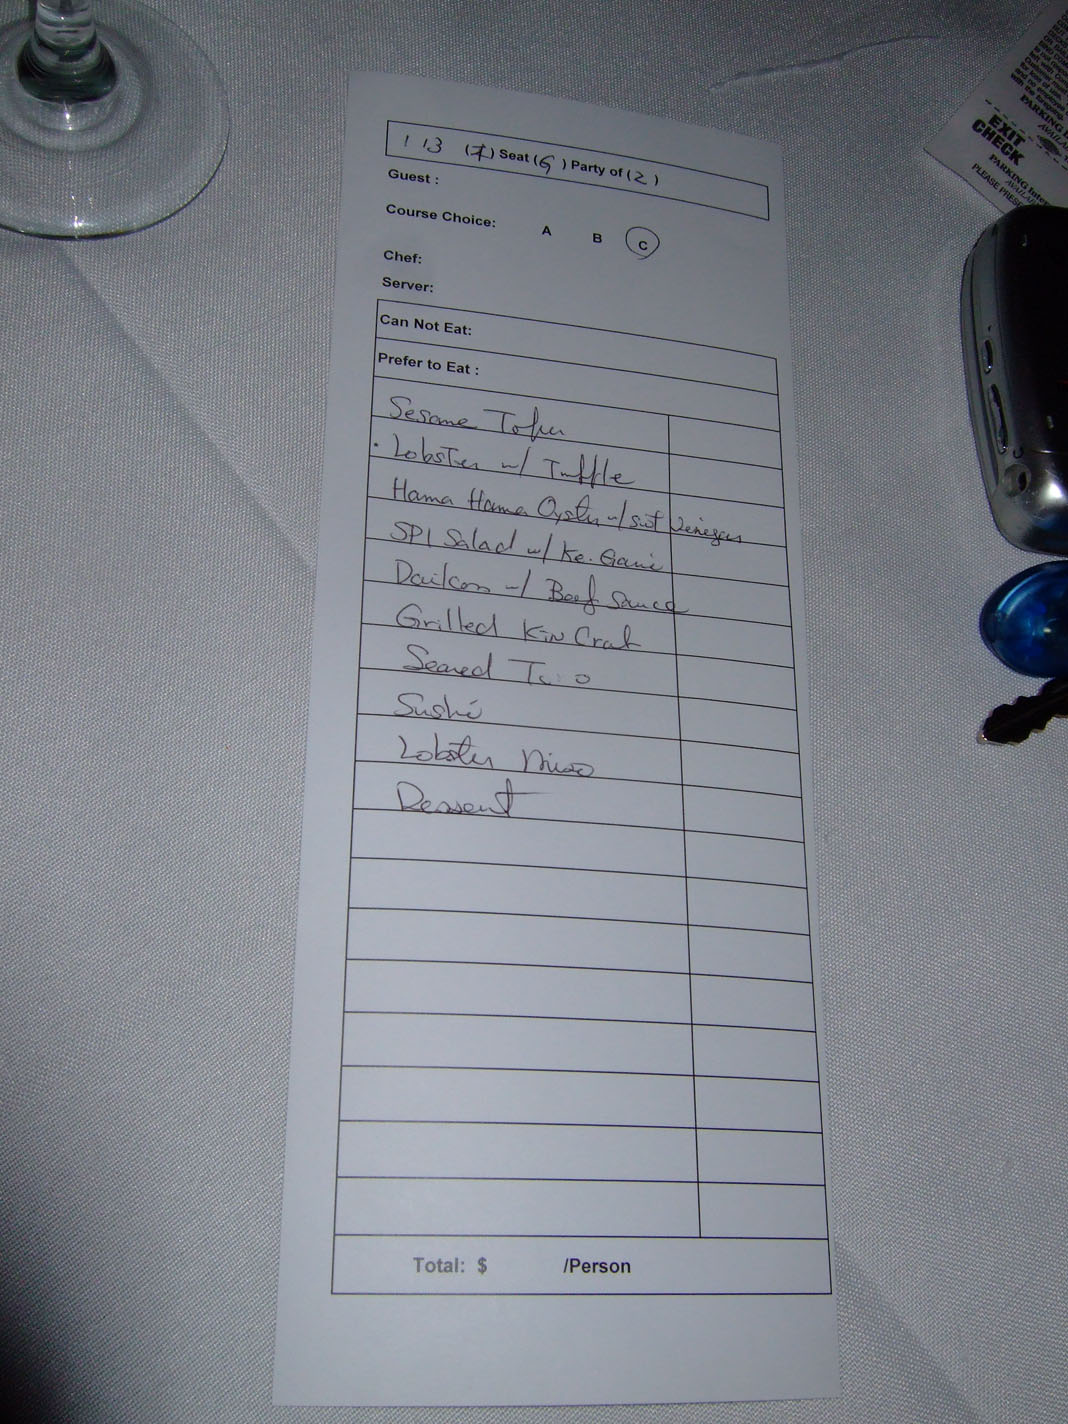 1 13 (木) Seat (G) Party of (2)
Guest :
Course Choice: A B C
Chef:
Server:
Can Not Eat:
Prefer to Eat :
Sesame Tofu
Lobster w/ Truffle
Hama Hama Oyster w/ Vinegar
SP1 Salad w/ Ke. Gani
Daikon w/ Beef Sauce
Grilled Kin Crab
Seared
Sushi
Lobster Miso
Dessert
Total: $ /Person
EXIT
CHECK
PARKING
PLEASE